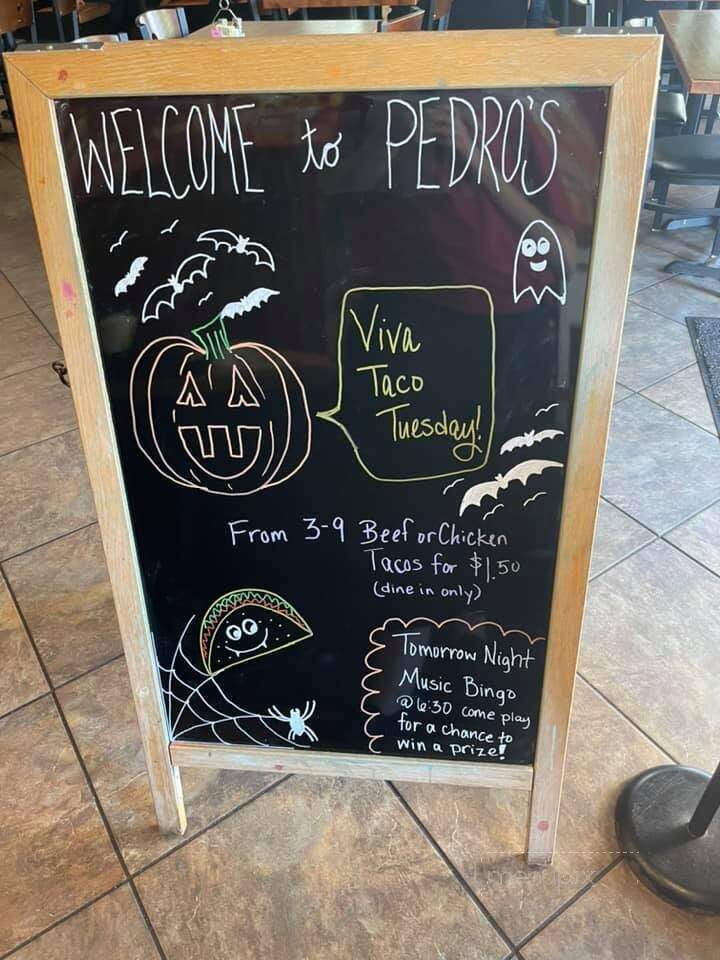 WELCOME to PEDRO'S
Viva
Taco
Tuesday!
From 3-9 Beef or Chicken
Tacos for $1.50
(dine in only)
Tomorrow Night
Music Bingo
@ 6:30 come play
for a chance to
win a prize!